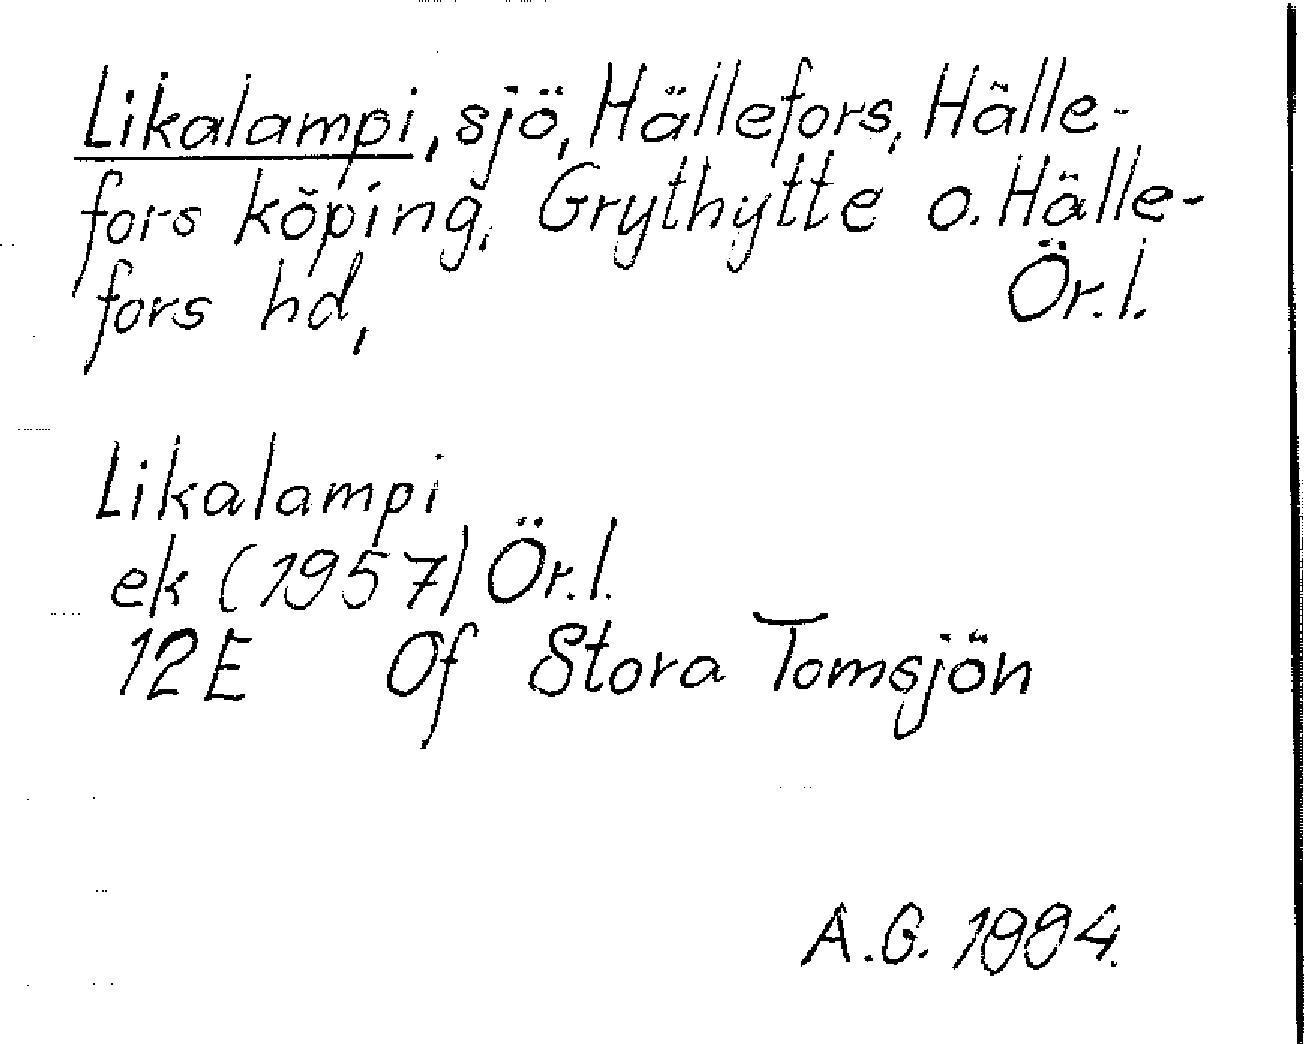 Likalampi, sjö, Hällefors, Hälle-
fors köping, Grythytte o. Hälle-
fors hd, Ör.l.
Likalampi
ek (1957) Ör.l.
12E Of Stora Tomsjön
A.G. 1994.